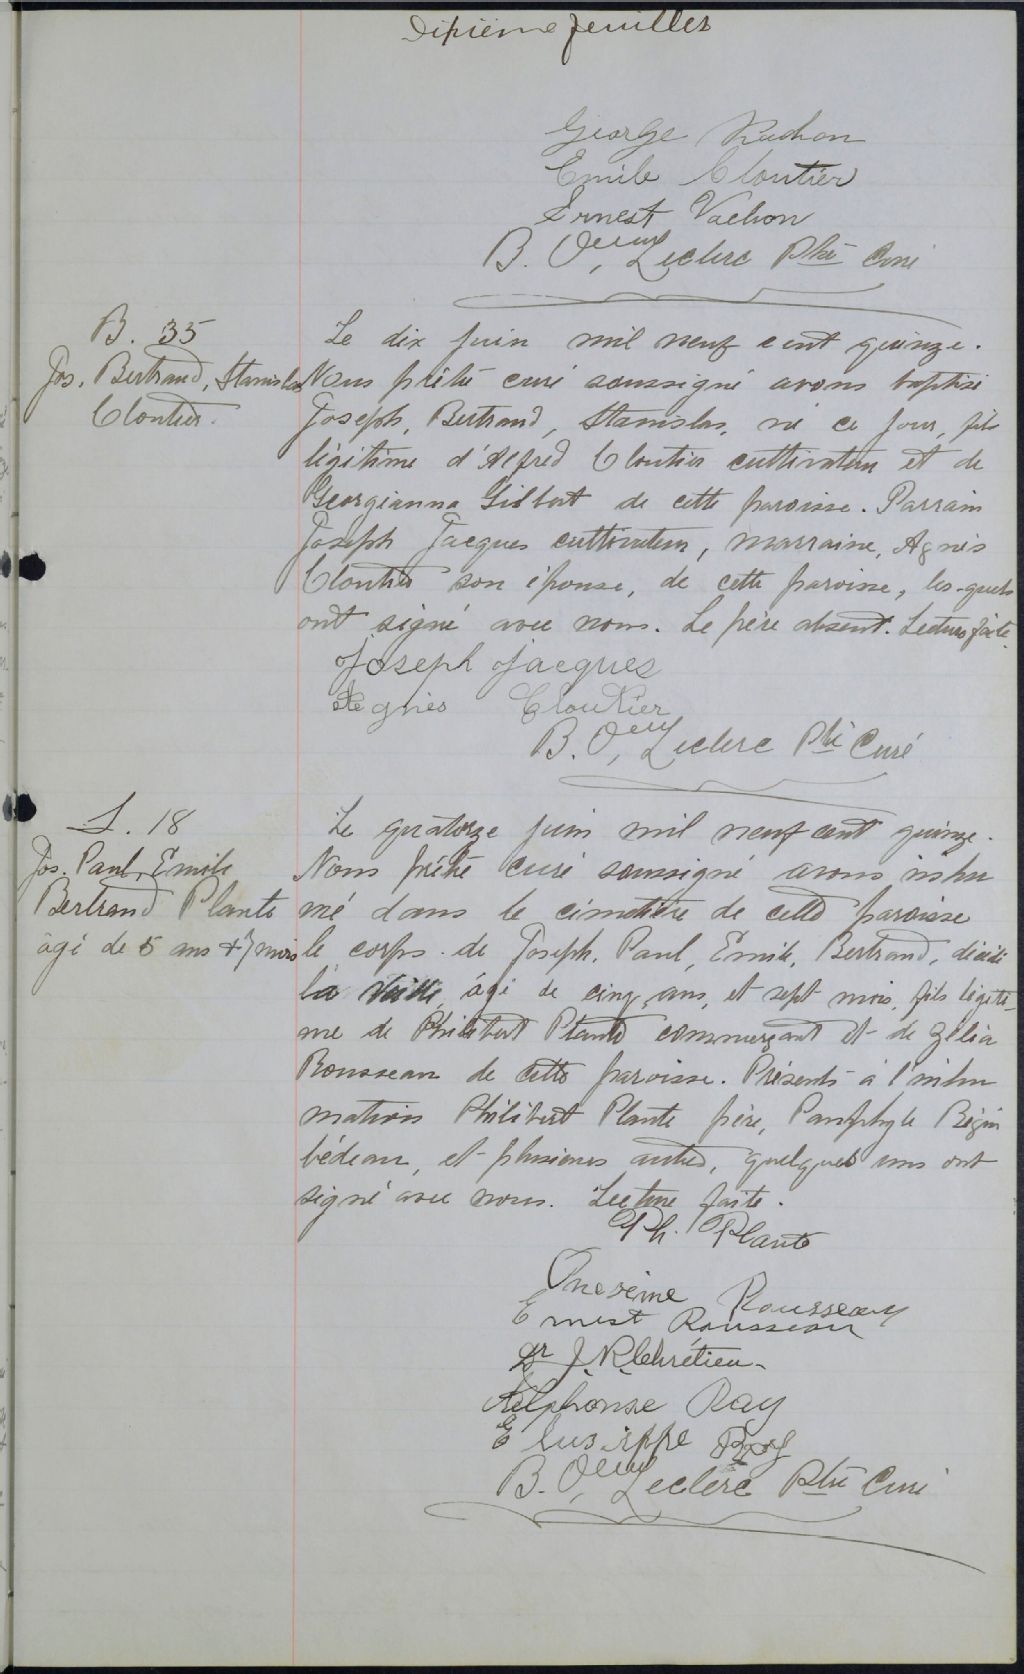 Dixième feuillet
George Vachon
Emile Cloutier
Ernest Vachon
B. Oeury Leclerc Ptre Curé
B. 35
Jos. Bertrand, Stanislas
Cloutier.
Le dix juin mil neuf cent quinze.
Nous prêtre curé soussigné avons baptisé
Joseph, Bertrand, Stanislas, né ce jour, fils
légitime d'Alfred Cloutier cultivateur et de
Georgianna Gilbert de cette paroisse. Parrain
Joseph Jacques cultivateur, marraine, Agnès
Cloutier son épouse, de cette paroisse, les-quels
ont signé avec nous. Le père absent. Lecture faite.
Joseph Jacques
Agnès Cloutier
B. Oeury Leclerc Ptre Curé
S. 18
Jos. Paul, Emile
Bertrand Plante
âgé de 5 ans + 7 mois
Le quatorze juin mil neuf cent quinze.
Nous prêtre curé soussigné avons inhu
mé dans le cimetière de cette paroisse
le corps de Joseph, Paul, Emile, Bertrand, décédé
la veille, âgé de cinq ans, et sept mois, fils légiti-
me de Philibert Plante commerçant et de Zélia
Rousseau de cette paroisse. Présents à l'inhu
mation Philibert Plante père, Pamphyle Bégin
bédeau, et plusieurs autres, quelques uns ont
signé avec nous. Lecture faite.
Ph. Plante
Onesime Rousseau
Ernest Rousseau
Dr J. R. Chrétien
Alphonse Roy
Eleusippe Roy
B. Oeury Leclerc Ptre Curé